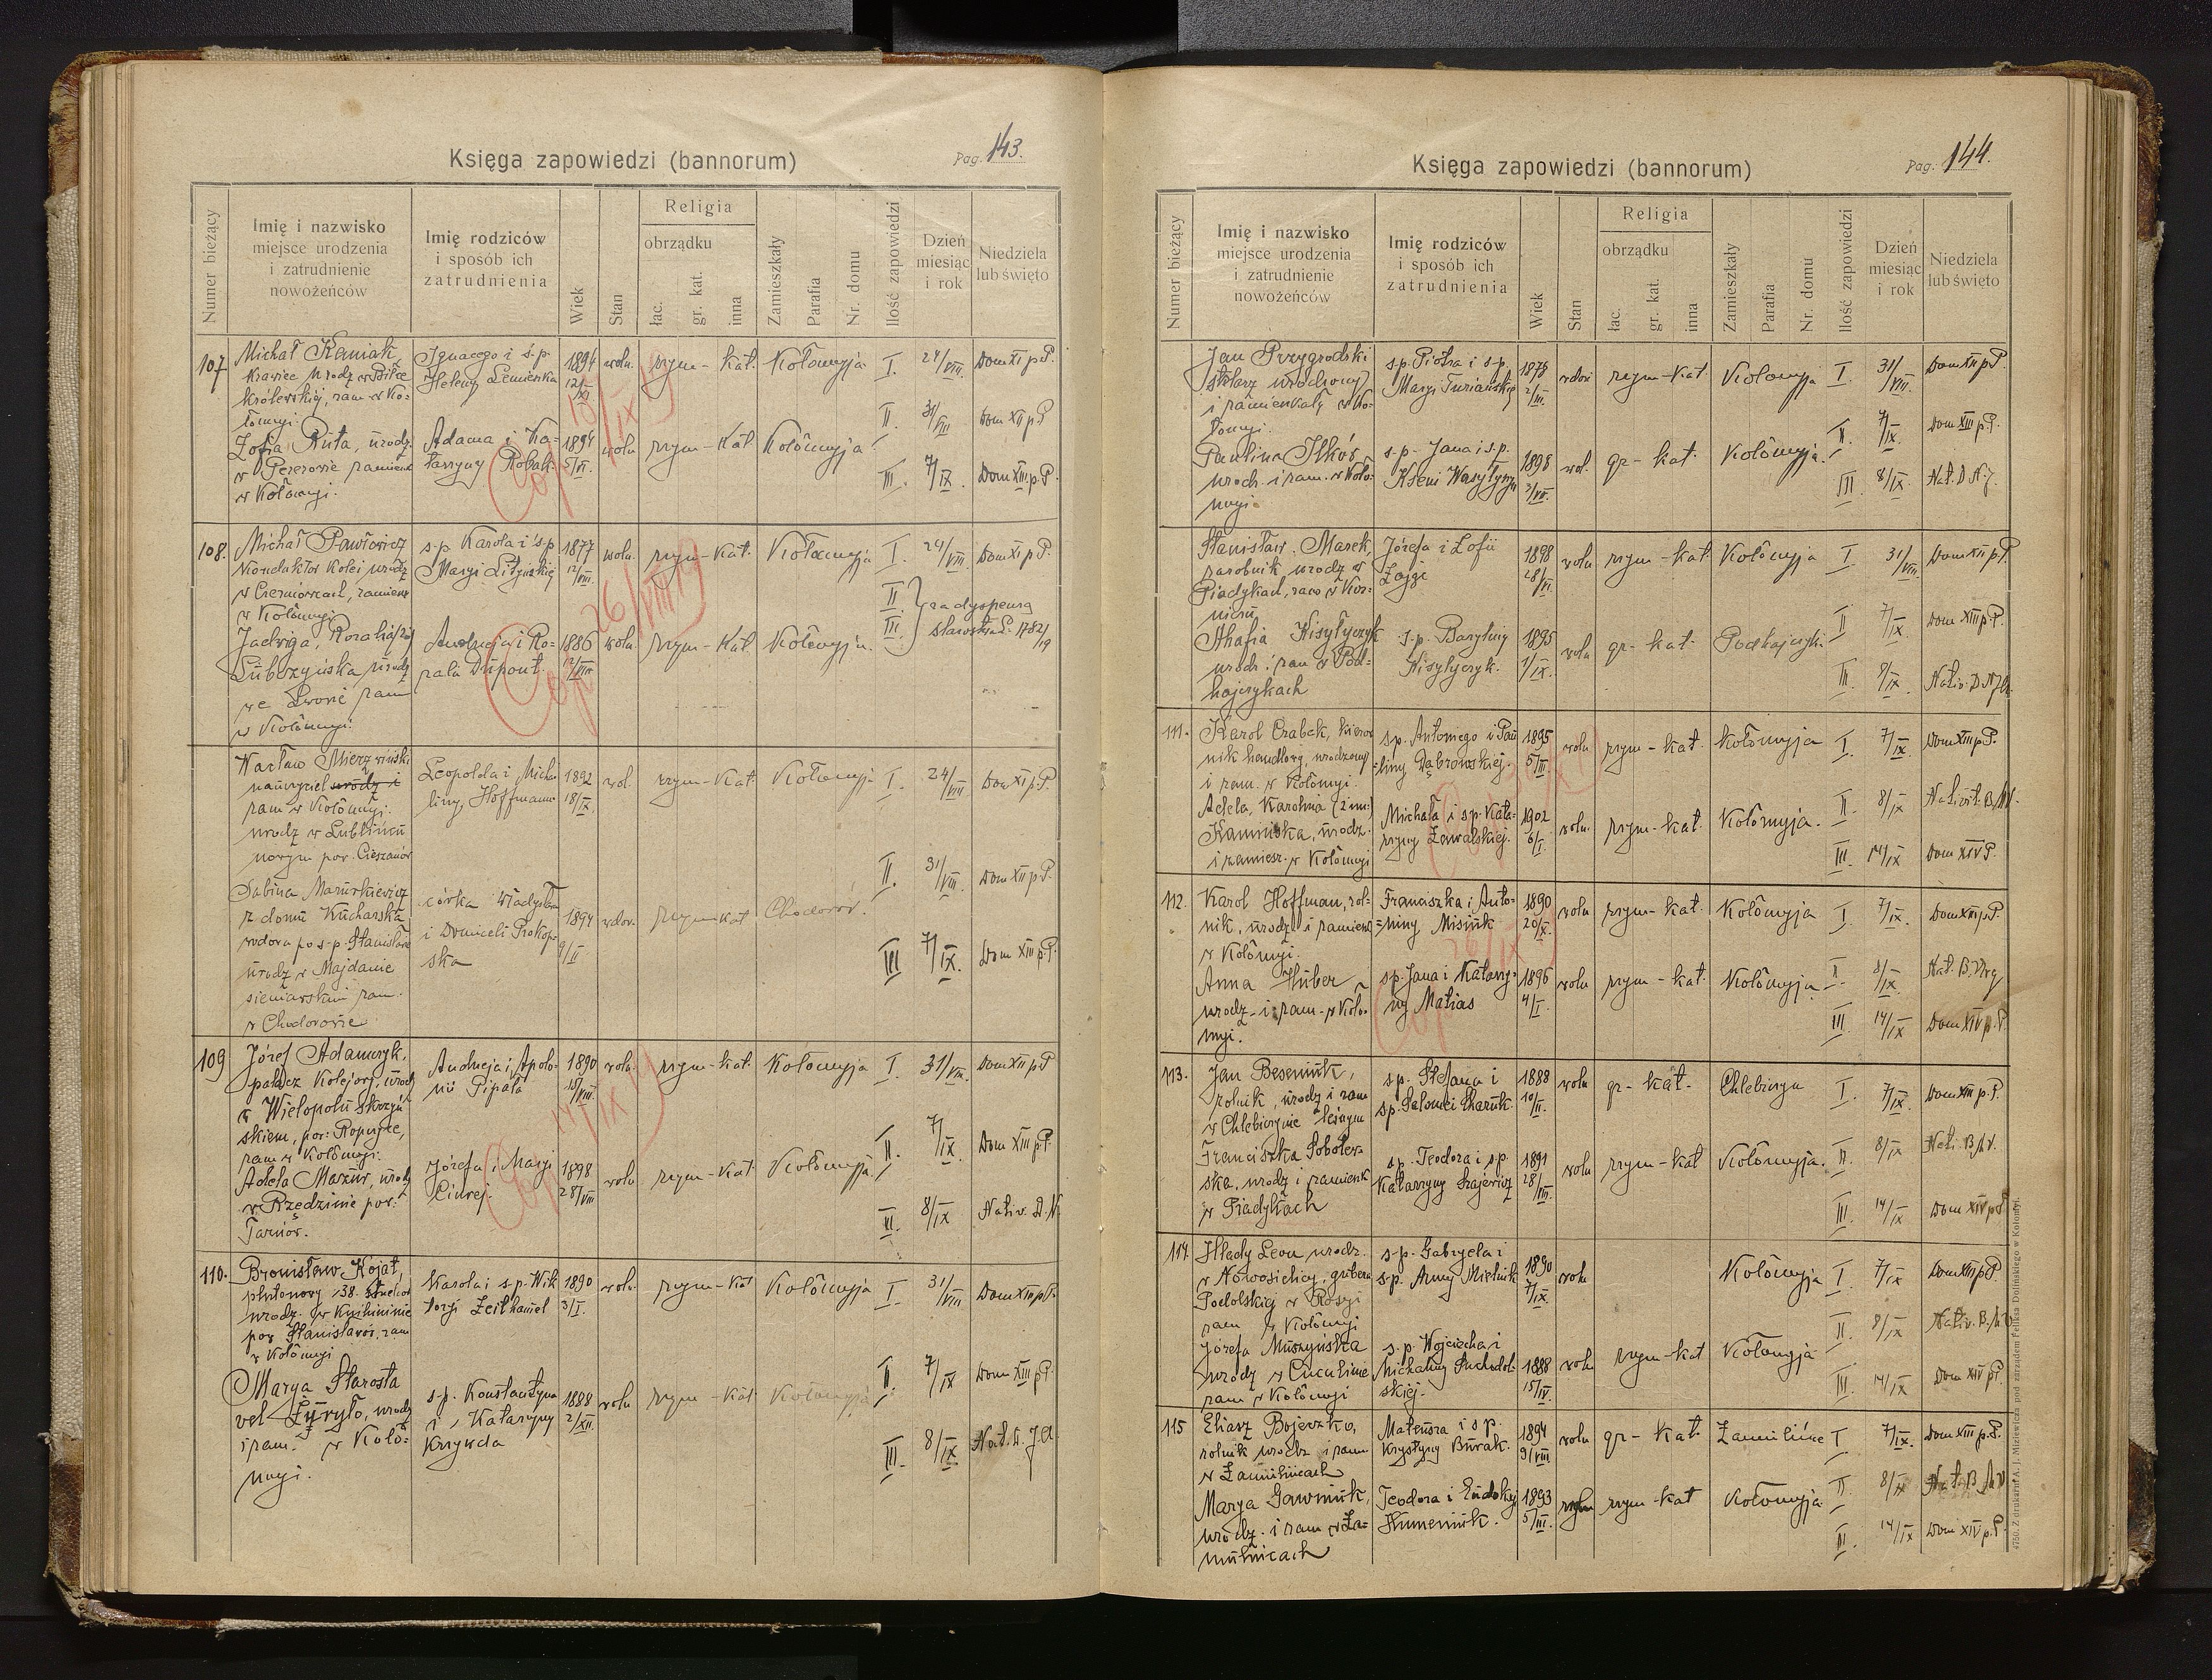 Księga zapowiedzi (bannorum)
Pag. 143.
Numer bieżący
Imię i nazwisko
miejsce urodzenia
i zatrudnienie
nowożeńców
Imię rodziców
i sposób ich
zatrudnienia
Wiek
Stan
Religia
obrządku
łac.
gr. kat.
inna
Zamieszkały
Parafia
Nr. domu
Ilość zapowiedzi
Dzień
miesiąc
i rok
Niedziela
lub święto
107
Michał
Krawiec urodz w
królewskiej, zam w Ko-
łomyi
Ignacego i s.p.
Heleny
1894
12/XI
woln.
rzym-kat.
Kołomyja
I. 24/VIII. Dom XI p. P.
II 31/VIII Dom XII p P
Zofia Ruta, urodz.
w zamieszk
w Kołomyi.
Adama i Ka-
tarzyny Robak
1894
5/VI.
woln
rzym-kat.
Kołomyja
III. 7/IX. Dom XIII. p. P.
108.
Michał Pawłowicz
Konduktor Kolei urodz
w Czerniowcach, zamiesz
w Kołomyi
s.p. Karola i s.p
Maryi
1877
12/VIII.
woln.
rzym-kat.
Kołomyja
I. 24/VIII Dom XI p P.
II
III.
za dyspensą
Starostwa L. 1782/19
26/VIII 19
Jadwiga, Rozalia
Lubszyńska urodz
we Lwowie zam
w Kołomyi.
Andrzeja i Ro-
zala Dupont.
1886
12/VIII
woln.
rzym-kat
Kołomyja.
Wacław Mierzwiński
nauczyciel urodz i
zam w Kołomyi.
urodz w Lublińcu
nowym pow. Cieszanów
Leopolda i Micha
liny, Hoffmann
1892
18/IX.
wol.
rzym-kat
Kołomyja
I. 24/VIII Dom XI p. P.
II. 31/VIII. Dom XII p. P.
Sabina Mazurkiewicz
z domu Kucharska
wdowa po s.p. Stanisławie
urodz w Majdanie
sieniawskim zam.
w Chodorowie
córka Władysława
i Domiceli Prokop-
ska
1894
9/II
wdow.
rzym-kat
Chodorów.
III 7/IX. Dom XIII p. P.
109
Józef Adamczyk,
palacz kolejowy, urodz
w Wielopolu Skrzyń
skiem, pow. Ropczyce,
zam w Kołomyi.
Andrzeja i Apolo-
nii Pipała
1890
15/VIII.
woln.
rzym-kat.
Kołomyja
I. 31/VIII. Dom XII p. P
II. 7/IX. Dom XIII p. P.
Adela Mazur, urodz
w Rzędzinie pow.
Tarnów.
Józefa i Maryi
1898
28/VIII
woln
rzym-kat
Kołomyja
III. 8/IX Nativ.
110.
Bronisław Kojat,
plutonowy 38.
urodz. w Knihininie
pow Stanisławów, zam
w Kołomyi
Karola i s.p. Wik
toryi
1890
3/I.
woln.
rzym-kat
Kołomyja
I 31/VIII Dom XII p. P.
II. 7/IX Dom XIII p. P.
Marya Starosta
vel urodz
i zam. w Koło-
myi.
s.p. Konstantyna
i Katarzyny
Krzywda
1888
2/XII.
woln
rzym-kat
Kołomyja
III. 8/IX
Księga zapowiedzi (bannorum)
Pag. 144.
Numer bieżący
Imię i nazwisko
miejsce urodzenia
i zatrudnienie
nowożeńców
Imię rodziców
i sposób ich
zatrudnienia
Wiek
Stan
Religia
obrządku
łac.
gr. kat.
inna
Zamieszkały
Parafia
Nr. domu
Ilość zapowiedzi
Dzień
miesiąc
i rok
Niedziela
lub święto
Jan Przygrodski
stolarz urodzony
i zamieszkały w Ko-
łomyi.
s.p. Piotra i s.p.
Maryi Turiańskiej
rzym-kat
Kołomyja
I. 31/VIII. Dom XII p P.
II. 7/IX. Dom XIII p. P.
Paulina Ilków
urodz. i zam. w Koło-
myi.
s.p. Jana i s.p.
Kseni
1898
wol.
gr-kat.
Kołomyja.
III. 8/IX. Nat.
Stanisław Marek,
zarobnik urodz w
Piadykach, zam w Kor-
niczu
Józefa i Zofii
Zając
1898
28/VI.
woln
rzym-kat
Kołomyja
I 31/VIII. Dom XII p. P.
II 7/IX. Dom XIII p. P.
Ahafia
urodz. i zam w Pod-
hajczykach
s.p. Bazylego
1895
1/IX.
woln
gr-kat.
Podhajczyki
III.
111.
Karol Czabak, kierow
nik handlowy, urodzony
i zam. w Kołomyi.
s.p. Antoniego i Pau
liny Dąbrowskiej.
1895
5/III.
woln
rzym-kat
Kołomyja
I. 7/IX Dom XIII p P.
Adela, Karolina (2 im.)
Kamińska, urodz.
i zamiesz. w Kołomyi
Michała i s.p. Kata-
rzyny Zawalskiej.
1902
6/I.
woln.
rzym-kat.
Kołomyja.
II. 8/IX
III 14/IX Dom XIV P.
112.
Karol Hoffman, rol-
nik, urodz. i zamiesz
w Kołomyi.
Franciszka i Anto-
niny Misiuk
1890
20/X.
woln
rzym-kat.
Kołomyja
I. 7/IX. Dom XIII p. P.
Anna Huber
urodz. i zam. w Koło-
myi.
s.p. Jana i Katarzy-
ny Matias
1896
4/I.
woln
rzym-kat.
Kołomyja
II. 8/IX. Nat. B.
III. 14/IX Dom XIV p. P.
113.
Jan Beseniuk,
rolnik, urodz i zam
w Chlebiczynie leśnym
s.p. Stefana i
s.p. Salomei
1888
10/II.
woln
gr-kat.
Chlebiczyn
I. 7/IX. Dom XIII p. P.
Franciszka Sobolew-
ska, urodz i zamieszk
w Piadykach
s.p. Teodora i s.p.
Katarzyny
1891
28/III.
woln
rzym-kat
Kołomyja.
II. 8/IX
III. 14/IX Dom XIV p P
114.
Hłady Leon urodz.
w Nowosielicy, gubern
Podolskiej w Rosyi
zam w Kołomyi
s.p. Gabryela i
s.p. Anny Mielnik
1890
7/IX.
woln
Kołomyja
I. 7/IX Dom XIII p P.
II 8/IX
Józefa Muszyńska
urodz w
zam w Kołomyi
s.p. Wojciecha i
Michaliny Suchodol-
skiej.
1888
15/IV.
woln
rzym-kat
Kołomyja
III. 14/IX. Dom XIV p P.
115
Eliasz Bojeczko,
rolnik urodz i zam
w Zamulińcach
Mateusza i s.p.
Krystyny Burak.
1894
9/VIII
woln
gr-kat.
Zamulińce
I 7/IX. Dom XIII p. P.
II 8/IX
Marya Gawniuk,
urodz. i zam w Za-
mulińcach
Teodora i Eudokii
Humeniuk.
1893
5/III.
rzym-kat
Kołomyja
III. 14/IX Dom XIV p. P.
4750. Z drukarni A. J. Miziewicza pod zarządem Feliksa Dolińskiego w Kołomyi.